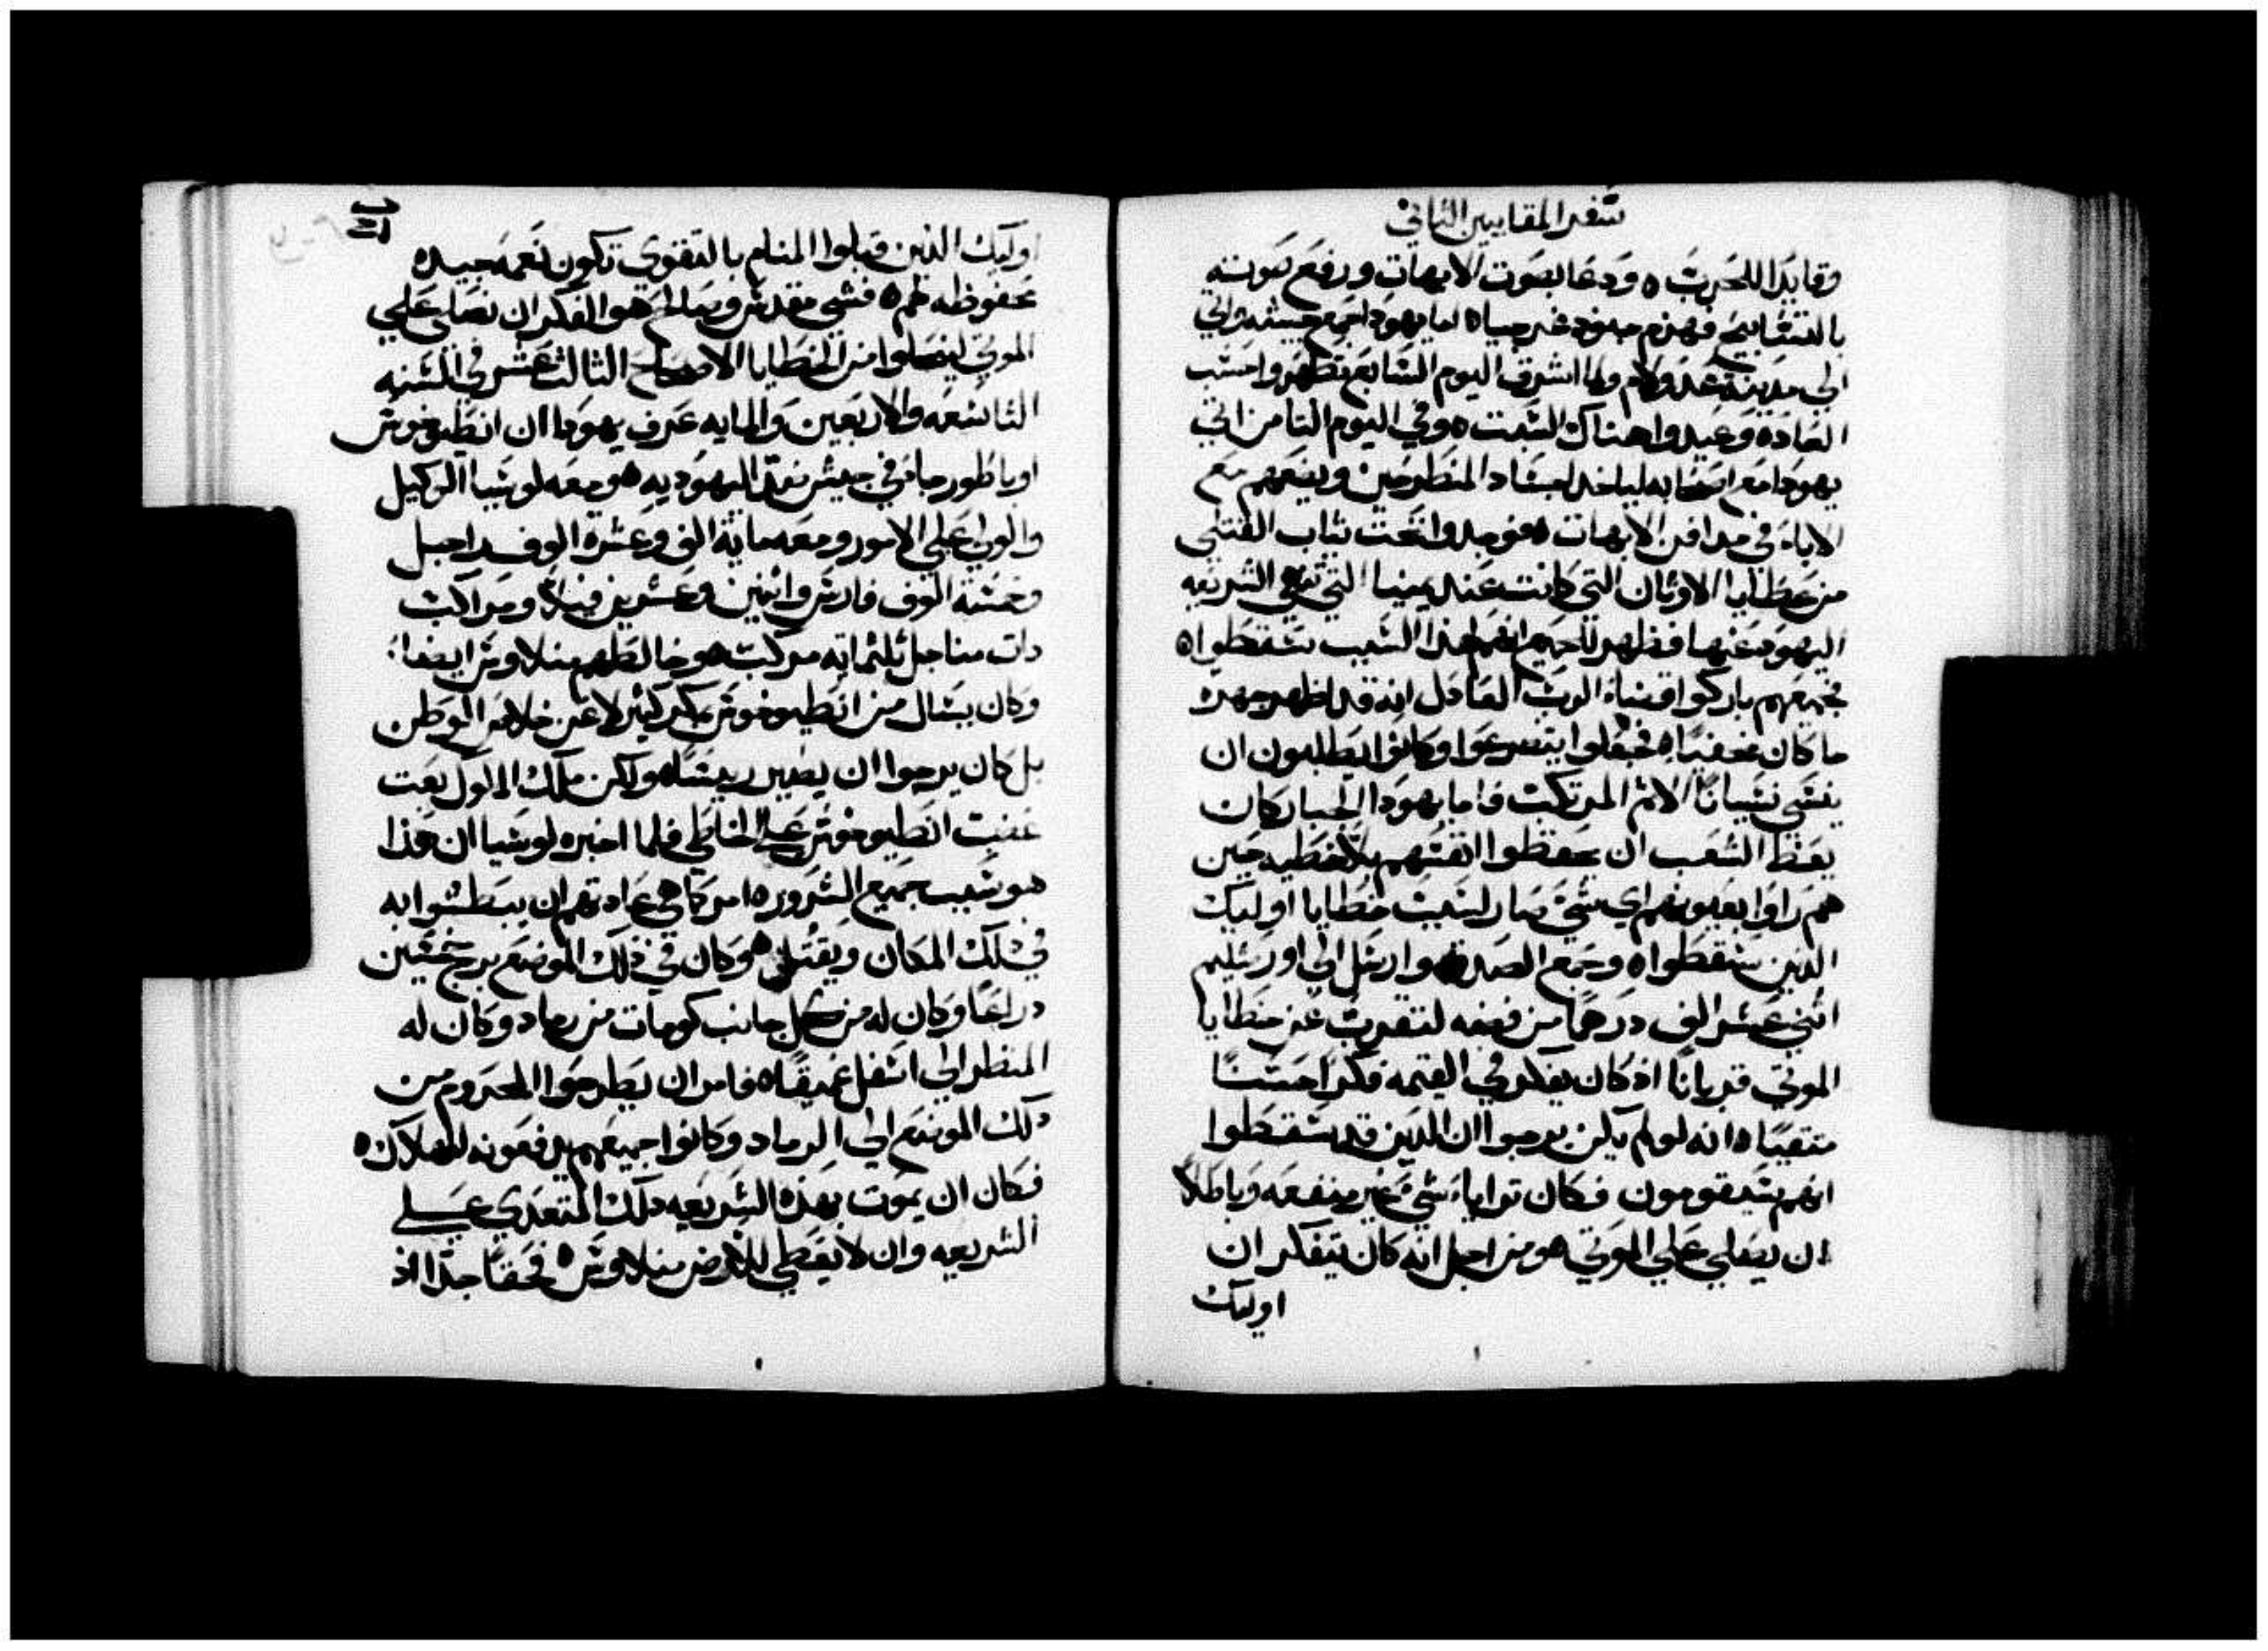 سفر المقابيين الثاني
وقايدا للحرب ه ودعا بصوت الابهات ورفع صوته
بالتسابيح فهزم جنود غرجيا ه اما يهودا جمع جيشه واتي
الي مدينة عدولام ولما اشرق اليوم السابع تطهروا حسب
العاده وعيدوا هناك السبت ه وفي اليوم التامن اتي
يهودا مع اصحابه لياخد اجساد المنطرحين ويضعهم مع
الاباء في مدافن الابهات ه فوجدوا تحت تياب القتلي
من عطايا الاوتان التي كانت عند يمنيا التي تنهي الشريعه
اليهود عنها فظهر للجميع انهم لهذا السبب سقطوا ه
فجميعهم باركوا قضاء الرب العادل انه قد اظهر جهره
ما كان مخفيا ه فجعلوا يتضرعوا وكانوا يطلبون ان
ينسي نسيانا الاثم المرتكب فاما يهودا الجبار كان
يعظ الشعب ان يحفظوا انفسهم بلا خطيه حين
هم راوا بعيونهم اي شي صار لسبب خطايا اوليك
الدين سقطوا ه وجمع الصدقه وارسل الي اورشليم
اثني عشر الف درهما من فضه لتقرب عن خطايا
الموتي قربانا اد كان يفكر في القيمه فكرا حسنا
متقيا ه انه لو لم يكن يرجوا ان الدين قد سقطوا
انهم سيقومون فكان تراياء شي غير منفعه وباطلا
ان يصلي علي الموتي ه ومن اجل انه كان يتفكر ان
اوليك
اوليك الدين قبلوا المنام بالتقوي تكون نعمه جيده
محفوظه لهم ه فشي مقدس وصالح هو الفكر ان نصلي علي
الموتي لينحلوا من الخطايا الاصحاح الثالث عشر في السنه
التاسعه والاربعين والمايه عرف يهودا ان انطيوخوس
اوباطور جاء في جيش نقد اليهوديه ه ومعه لوسيا الوكيل
والولي علي الامور ومعه ماية الف وعشرة الوف راجل
وخمسة الوف فارس واثنين وعشرين فيلا ومراكب
دات مناجل ثلثمايه مركب ه وخالطهم منلاوس ايضا
وكان يسال من انطيوخوس بمكر كثير لا عن خلاص الوطن
بل كان يرجوا ان يصير ريسا ه ولكن ملك الملوك بعت
غضب انطيوخوس علي الخاطي فلما اخبره لوسيا ان هذا
هو سبب جميع الشرور ه امر كما هي عادتهم ان يبطشوا به
في دلك المكان ويقتل ه وكان في دلك الموضع برج خمسين
دراعا وكان له من كل جانب كومات من رماد وكان له
المنظر الي اسفل عميقا ه فامر ان يطرحوا المحروم من
دلك الموضع الي الرماد وكانوا جميعهم يدفعونه للهلاك ه
فكان ان يموت بهذه الشريعه دلك المتعدي علي
الشريعه وان لا يعطي للارض منلاوس ه فحقا جدا اد